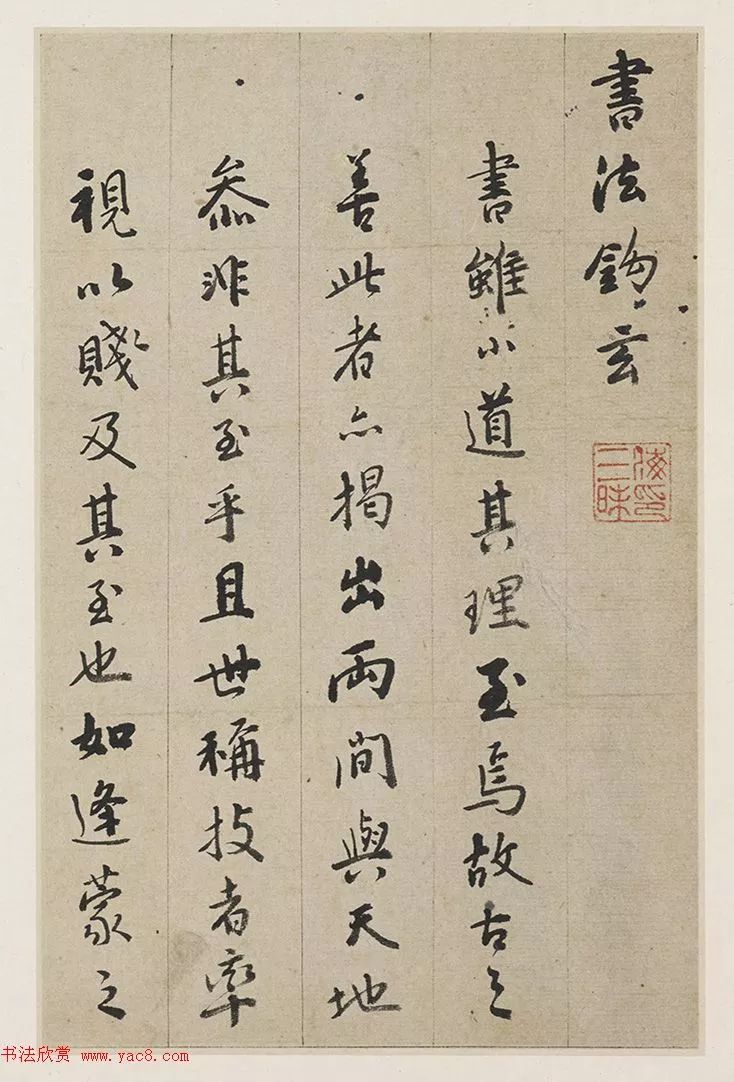 書法鈎玄
書雖小道其理至焉故古之
善此者亦揭出兩間與天地
叅非其至乎且世稱技者率
視以賤及其至也如逢蒙之
三昧
书法欣赏 www.yac8.com